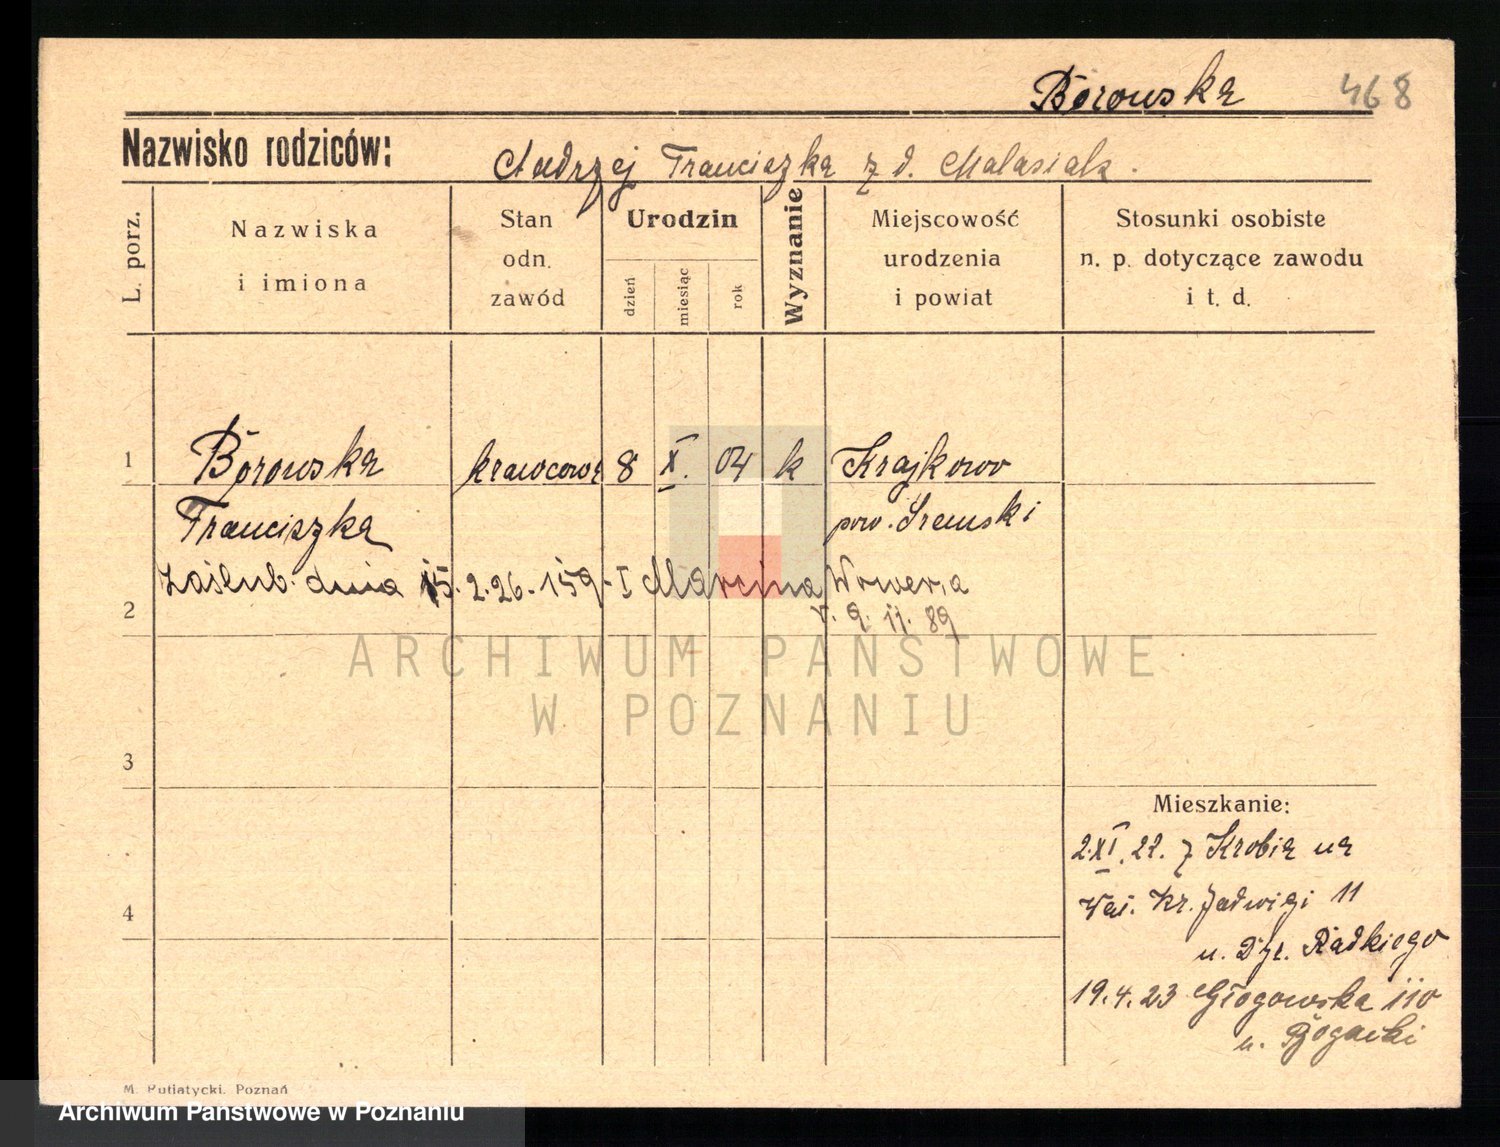 Borowska 468
Nazwisko rodziców: Andrzej Franciszka z d. Matasiak.
L. porz.
Nazwiska
i imiona
Stan
odn.
zawód
Urodzin
dzień
miesiąc
rok
Wyznanie
Miejscowość
urodzenia
i powiat
Stosunki osobiste
n. p. dotyczące zawodu
i t. d.
1 Borowska krawcowa 8 X. 04 k Krajkowo
Franciszka pow. Śremski
Zaślub. dnia 15. 2. 26. 159-I Marcina
2 r. 9. 11. 89
ARCHIWUM PAŃSTWOWE
W POZNANIU
3
Mieszkanie:
2.XI.22. z Krobia na
Kr. Jadwigi 11
4
u. Dyr. Radkiego
19.4.23 Głogowska 110
u. Bogacki
M. Putiatycki. Poznań
Archiwum Państwowe w Poznaniu